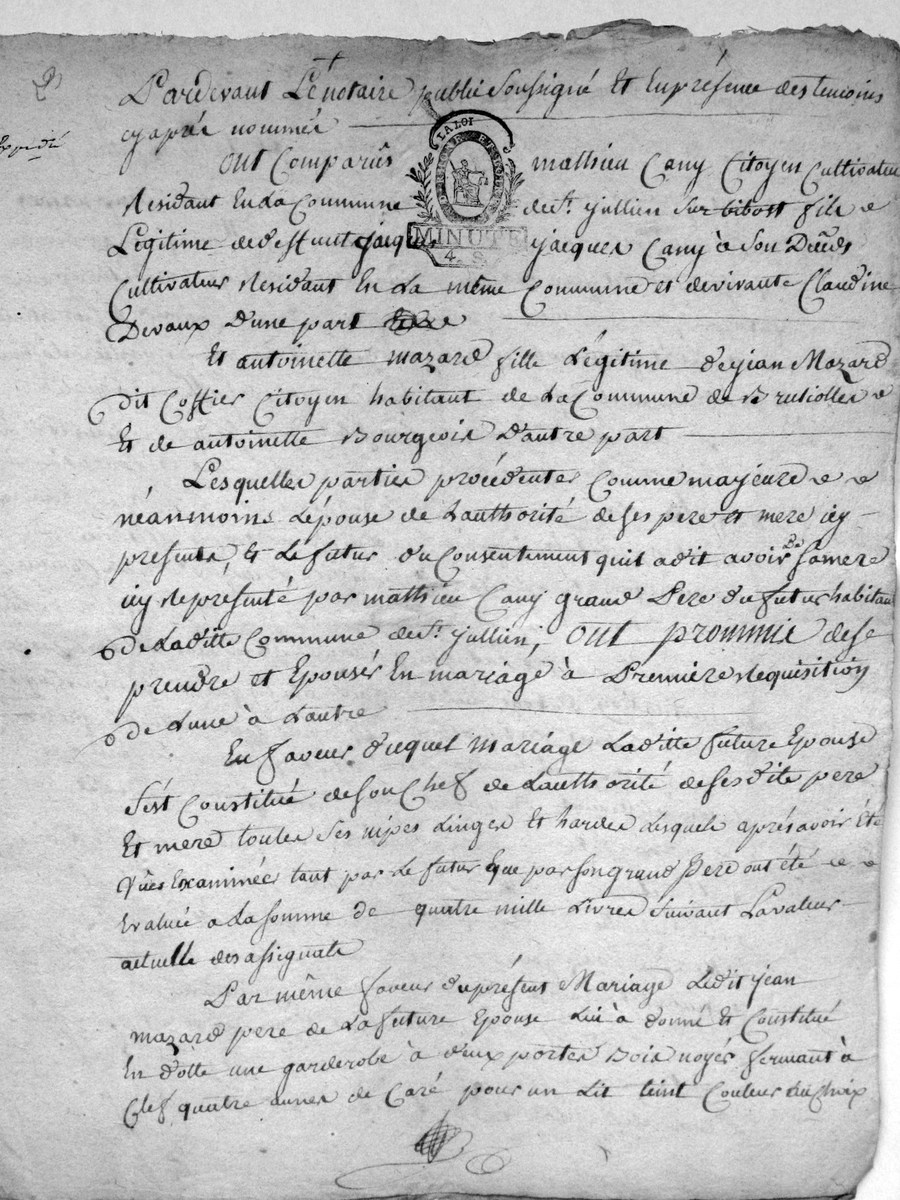 Pardevant Le notaire public Soussigné Et En présence des temoins
cy aprés nommés
LA LOI
MINUTE
4. S.
ont Comparûs mathieu Cany Citoyen Cultivateur
Residant En La Commune de St. jullien Sur bibost fils
Légitime de deffunt jacques Cany à Son Décéds
Cultivateur Residant En La même Commune et de vivante Claudine
Devaux d'une part
Et antoinette mazard fille Légitime de jean Mazard
dit Coffier Citoyen habitant de La Commune de Brusiolles
Et de antoinette Bourgeois D'autre part
Lesquelles parties procédentes Comme majeures
néanmoins L'épouse de L'authorité de ses pere et mere icy
presents, Et Le futur du Consentement quil a dit avoir de sa mere
icy représenté par mathieu Cany grand Pere du futur habitant
de Laditte Commune de St. jullien, ont prommis de se
prendre et Epouser En mariage à Premiere Requisition
de L'une à L'autre
En faveur duquel mariage Laditte future Epouse
S'est Constitué de Son Chef de L'authorité de ses dits pere
Et mere toutes Ses nipes Linges Et hardes Lesquels aprés avoir été
Vûes Examinées tant par Le futur que par son grand Pere ont été
Evalués a La Somme de quatre mille Livres Suivant La valeur
actuelle des assignats
Par même faveur du présent Mariage Ledit jean
mazard pere de La future Epouse Lui à donné Et Constitué
En dotte une garderobe à deux portes Bois noyér fermant à
Clef quatre aunes de Caré pour un Lit teint Couleur au Choix